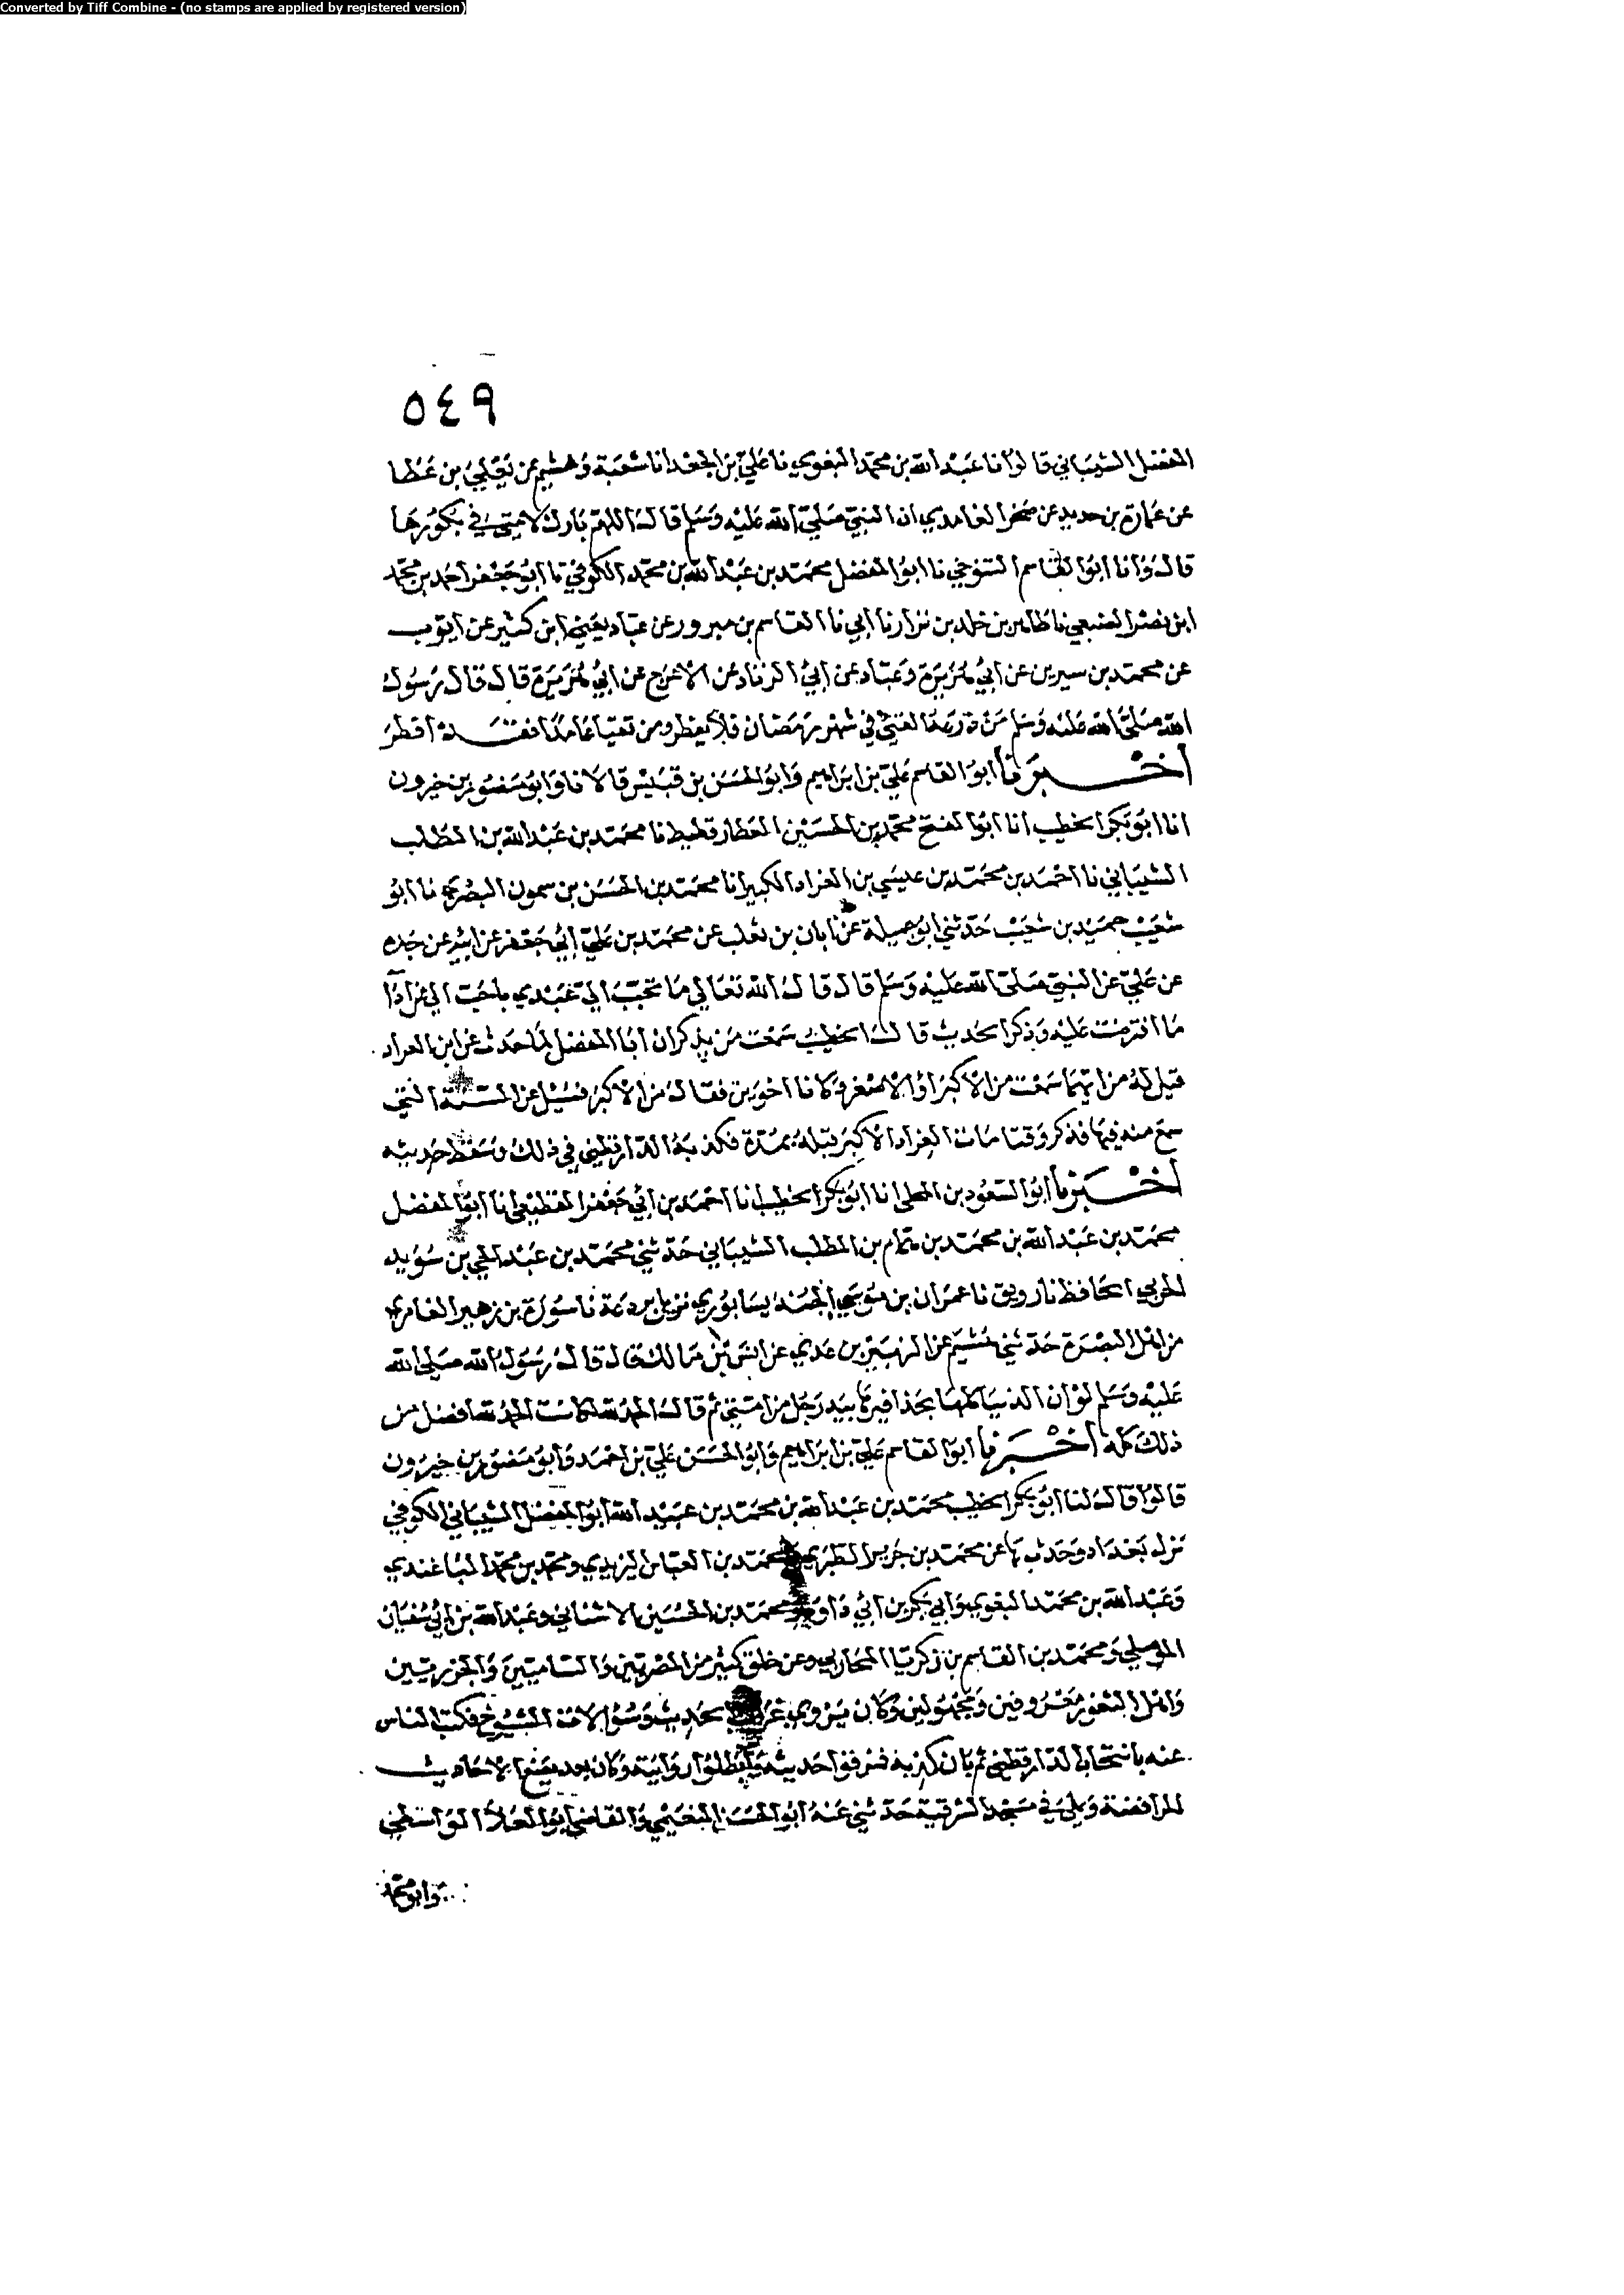 Converted by Tiff Combine - (no stamps are applied by registered version)
٥٤٩
المفضل الشيباني قالوا نا عبد الله بن محمد البغوي نا علي بن الجعد انا شعبة وهشيم عن يعلى بن عطا
عن عمارة بن حديد عن صخر الغامدي ان النبي صلى الله عليه وسلم قال اللهم بارك لامتي في بكورها
قال وانا ابو القاسم التنوخي نا ابو المفضل محمد بن عبد الله بن محمد الكوفي نا ابو جعفر احمد بن محمد
ابن نصر الضبعي نا طاهر بن خلد بن نزار نا ابي نا القاسم بن مبرور عن عباد يعني ابن كثير عن ايوب
عن محمد بن سيرين عن ابي هريرة وعباد عن ابي الزناد عن الاعرج عن ابي هريرة قال قال رسول
الله صلى الله عليه وسلم من ذرعه القئ في شهر رمضان فلا يفطر ومن تقيا عامدا فقد افطر
اخبرنا ابو القاسم علي بن ابراهيم وابو الحسن بن قبيس قالا نا وابو منصور بن خيرون
انا ابو بكر الخطيب انا ابو الفتح محمد بن الحسين العطار قطيط نا محمد بن عبد الله بن المطلب
الشيباني نا احمد بن محمد بن عيسى بن العراد الكبير نا محمد بن الحسن بن سمون البصري نا ابو
شعيب حميد بن شعيب حدثني ابو جميلة عن ابان بن تغلب عن محمد بن علي ابي جعفر عن ابيه عن جده
عن علي عن النبي صلى الله عليه وسلم قال قال الله تعالى ما تحبب الي عبدي باحب الي من اداء
ما افترضت عليه وذكر الحديث قال الخطيب سمعت من يذكر ان ابا المفضل لما حدث عن ابن العراد
قيل له من ايهما سمعت من الاكبر او الاصغر وكانا اخوين فقال من الاكبر فسئل عن السنة التي
سمع منه فيها فذكر وقتا مات العراد الاكبر قبله بمدة فكذبه الدارقطني في ذلك وسقط حديثه
اخبرنا ابو السعود بن المجلى انا ابو بكر الخطيب انا احمد بن ابي جعفر القطيعي نا ابو المفضل
محمد بن عبد الله بن محمد بن همام بن المطلب الشيباني حدثني محمد بن عبد الحي بن سويد
الحربي الحافظ نا زريق نا عمران بن موسى الجنديسابوري نزيل بردعة نا سورة بن زهير الغامري
من اهل البصرة حدثني هشيم عن الزبير بن عدي عن انس بن مالك قال قال رسول الله صلى الله
عليه وسلم لو ان الدنيا كلها بحذافيرها بيد رجل من امتي ثم قال الحمد لله لكانت الحمد لله افضل من
ذلك كله اخبرنا ابو القاسم علي بن ابراهيم وابو الحسن علي بن احمد وابو منصور بن خيرون
قالوا قال لنا ابو بكر الخطيب محمد بن عبد الله بن محمد بن عبيد الله ابو المفضل الشيباني الكوفي
نزل بغداد وحدث بها عن محمد بن جرير الطبري محمد بن العباس اليزيدي ومحمد بن محمد الباغندي
وعبد الله بن محمد البغوي وابي بكر بن ابي داود ومحمد بن الحسين الاشناني وعبد الله بن ابي سفيان
الموصلي ومحمد بن القاسم بن زكريا المحاربي وعن خلق كثير من المصريين والشاميين والجزريين
واهل الثغور معروفين ومجهولين وكان يروي غرايب الحديث وسؤالات الشيوخ فكتب الناس
عنه بانتخاب الدارقطني ثم بان كذبه فمزقوا حديثه وابطلوا روايته وكان بعد يضع الاحاديث
للرافضة ويملي في مسجد الشرقية حدثني عنه ابو الحسن النعيمي والقاضي ابو العلا الواسطي
وابو محمد